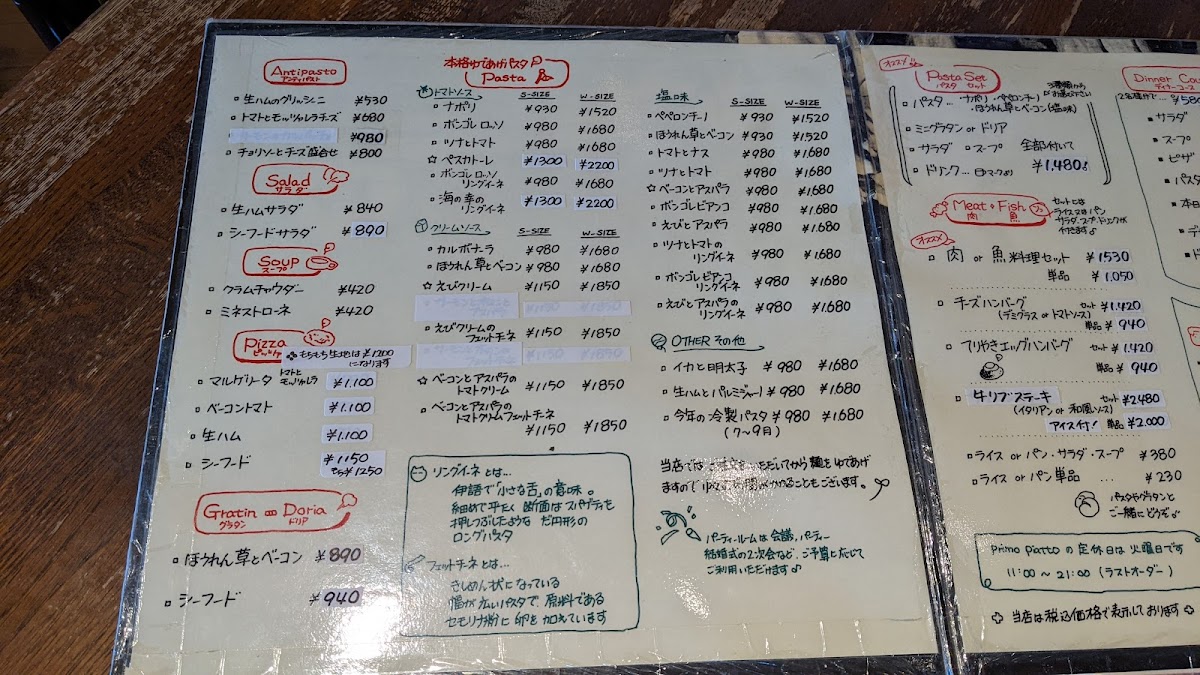 Antipasto
アンティパスト
生ハムのグリッシーニ ¥530
トマトとモッツァレラチーズ ¥680
¥980
チョリソーとチーズ盛合せ ¥800
Salad
サラダ
生ハムサラダ ¥840
シーフードサラダ ¥890
Soup
スープ
クラムチャウダー ¥420
ミネストローネ ¥420
Pizza
ピッツァ
もちもち生地は¥1200
になります
マルゲリータ トマトとモッツァレラ ¥1.100
ベーコントマト ¥1.100
生ハム ¥1.100
シーフード ¥1150
もち¥1250
Gratin Doria
グラタン ドリア
ほうれん草とベーコン ¥890
シーフード ¥940
本格ゆであげパスタ
Pasta
トマトソース S-SIZE W-SIZE
ナポリ ¥930 ¥1520
ボンゴレ ロッソ ¥980 ¥1680
ツナとトマト ¥980 ¥1680
☆ペスカトーレ ¥1300 ¥2200
ボンゴレ ロッソ
リングイーネ ¥980 ¥1680
海の幸の
リングイーネ ¥1300 ¥2200
クリームソース S-SIZE W-SIZE
カルボナーラ ¥980 ¥1680
ほうれん草とベーコン ¥980 ¥1680
☆えびクリーム ¥1150 ¥1850
えびクリームの
フェットチーネ ¥1150 ¥1850
☆ベーコンとアスパラの
トマトクリーム ¥1150 ¥1850
ベーコンとアスパラの
トマトクリームフェットチーネ
¥1150 ¥1850
リングイーネとは...
伊語で「小さな舌」の意味。
細めで平たく 断面はスパゲティを
押しつぶしたような だ円形の
ロングパスタ
フェットチーネとは...
きしめん状になっている
幅が広いパスタで、原料である
セモリナ粉に卵を加えています
塩味 S-SIZE W-SIZE
ペペロンチーノ ¥930 ¥1520
ほうれん草とベーコン ¥930 ¥1520
トマトとナス ¥980 ¥1.680
ツナとトマト ¥980 ¥1.680
☆ベーコンとアスパラ ¥980 ¥1.680
ボンゴレビアンコ ¥980 ¥1.680
えびとアスパラ ¥980 ¥1.680
ツナとトマトの
リングイーネ ¥980 ¥1.680
ボンゴレビアンコ
リングイーネ ¥980 ¥1.680
えびとアスパラの
リングイーネ ¥980 ¥1.680
OTHER その他
イカと明太子 ¥980 ¥1.680
生ハムとパルミジャーノ ¥980 ¥1.680
今年の冷製パスタ ¥980 ¥1.680
(7〜9月)
当店では いただいてから麺をゆであげ
ますので かかることもございます。
パーティールームは会議、パーティー
結婚式の2次会など、ご予算に応じて
ご利用いただけます♪
オススメ
Pasta Set
パスタ セット
3種類から
お選び下さい
パスタ...ナポリ・ペペロンチーノ
ほうれん草とベーコン(塩味)
ミニグラタン or ドリア
サラダ ・スープ 全部付いて
ドリンク... ¥1.480
Meat・Fish
肉 魚
セットには
ライス又はパン
サラダ・スープ・ドリンクが
付きます♪
オススメ
肉 or 魚料理セット ¥1530
単品 ¥1.050
チーズハンバーグ セット ¥1.420
(デミグラス or トマトソース) 単品 ¥940
てりやきエッグハンバーグ セット ¥1.420
単品 ¥940
牛リブステーキ セット ¥2480
(イタリアン or 和風ソース)
アイス付! 単品 ¥2.000
ライス or パン・サラダ・スープ ¥380
ライス or パン単品 ... ¥230
パスタやグラタンと
ご一緒にどうぞ♪
Primo Piatto の 定休日は 火曜日です
11:00〜21:00 (ラストオーダー)
当店は税込価格で表示しております
Dinner Cou
ディナーコース
サラダ
スープ
ピザ
パスタ